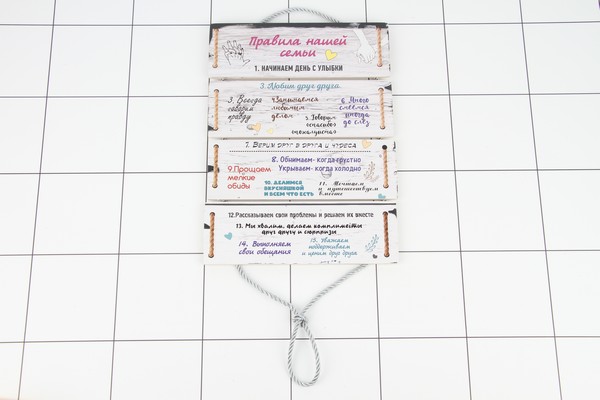 Правила нашей
семьи
1. НАЧИНАЕМ ДЕНЬ С УЛЫБКИ
3. Любим друг друга
3. Всегда
говорим
правду
4Занимаемся
любимым
делом
5.Говорим
спасибо
пожалуйста
6. Много
смеемся
иногда
до слез
7. Верим друг в друга и чудеса
8. Обнимаем- когда грустно
Укрываем- когда холодно
9.Прощаем
мелкие
обиды
10. ДЕЛИМСЯ
ВКУСНЯШКОЙ
И ВСЕМ ЧТО ЕСТЬ
11. Мечтаем
и путешествуем
вместе
12.Рассказываем свои проблемы и решаем их вместе
13. Мы хвалим, делаем комплименты
друг другу и сюрпризы
14. Выполняем
свои обещания
15. Уважаем
поддерживаем
и ценим друг друга